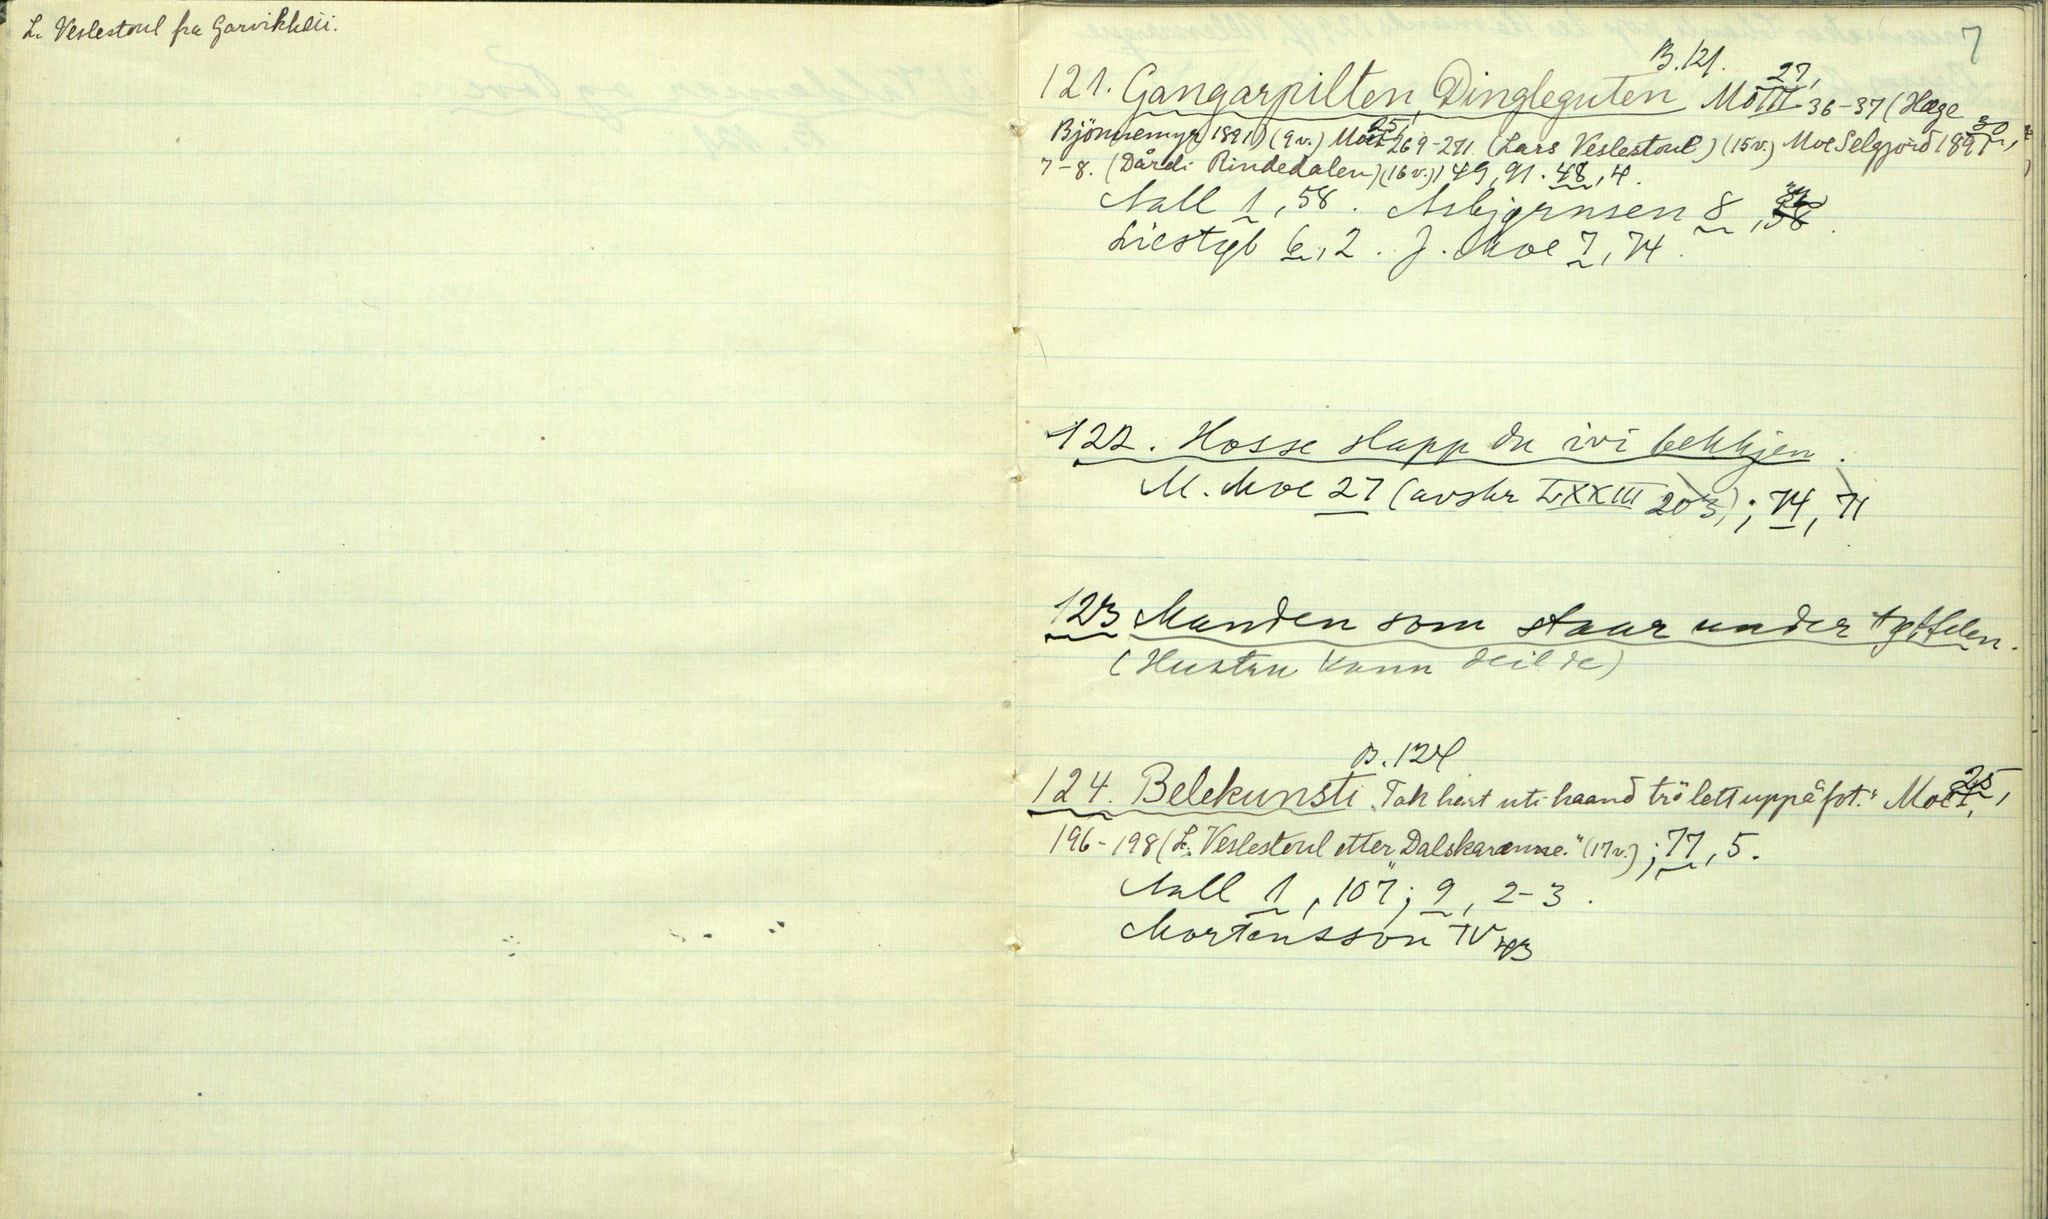 L. Veslestoul fra Garvikheii.
7
B. 121.
121. Gangarpilten, Dingleguten Mo III 27, 36-37 (Hæge
Bjönnemyr 1891) (9 v.) Moe 25, 269-271. (Lars Veslestoul) (15 v.) Moe Selgjord 1891 30,
7-8. (Dårdi Rindedalen) (16 v.) 49, 91. 48, 4.
Aall 1, 58. Asbjørnsen 8,
Liestøl 6, 2. J. Moe 7, 74.
122. Hosse slapp du ivi bekkjen.
M. Moe 27 (avskr LXXIII 203); 74, 71
123 Manden som staar under tøffelen.
(Hustru kann deilde)
B. 124
124. Belekunsti "Tak hest uti haand trö lett uppå fot." Moe 25,
196-198 (L. Veslestoul etter "Dalskarenne." (17 v.); 77, 5.
Aall 1, 107; 9, 2-3.
Mortensson IV 43